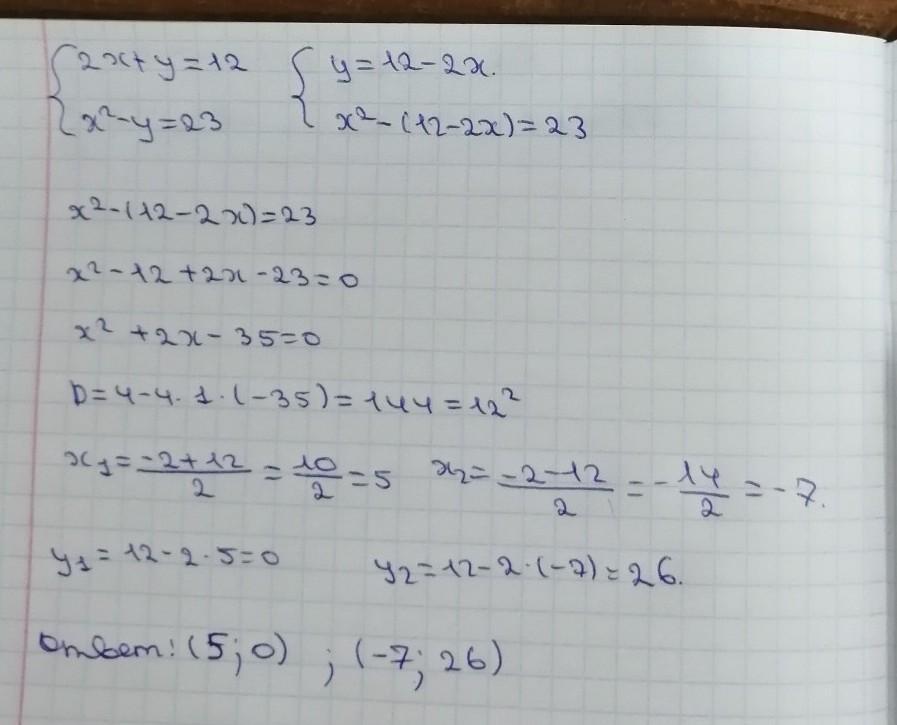 {2x+y=12 {y=12-2x.
{x²-y=23 {x²-(12-2x)=23
x²-(12-2x)=23
x²-12+2x-23=0
x²+2x-35=0
D=4-4·1·(-35)=144=12²
x₁=(-2+12)/2=10/2=5 x₂=(-2-12)/2=-14/2=-7.
y₁=12-2·5=0 y₂=12-2·(-7)=26.
Ответ: (5;0) ; (-7; 26)